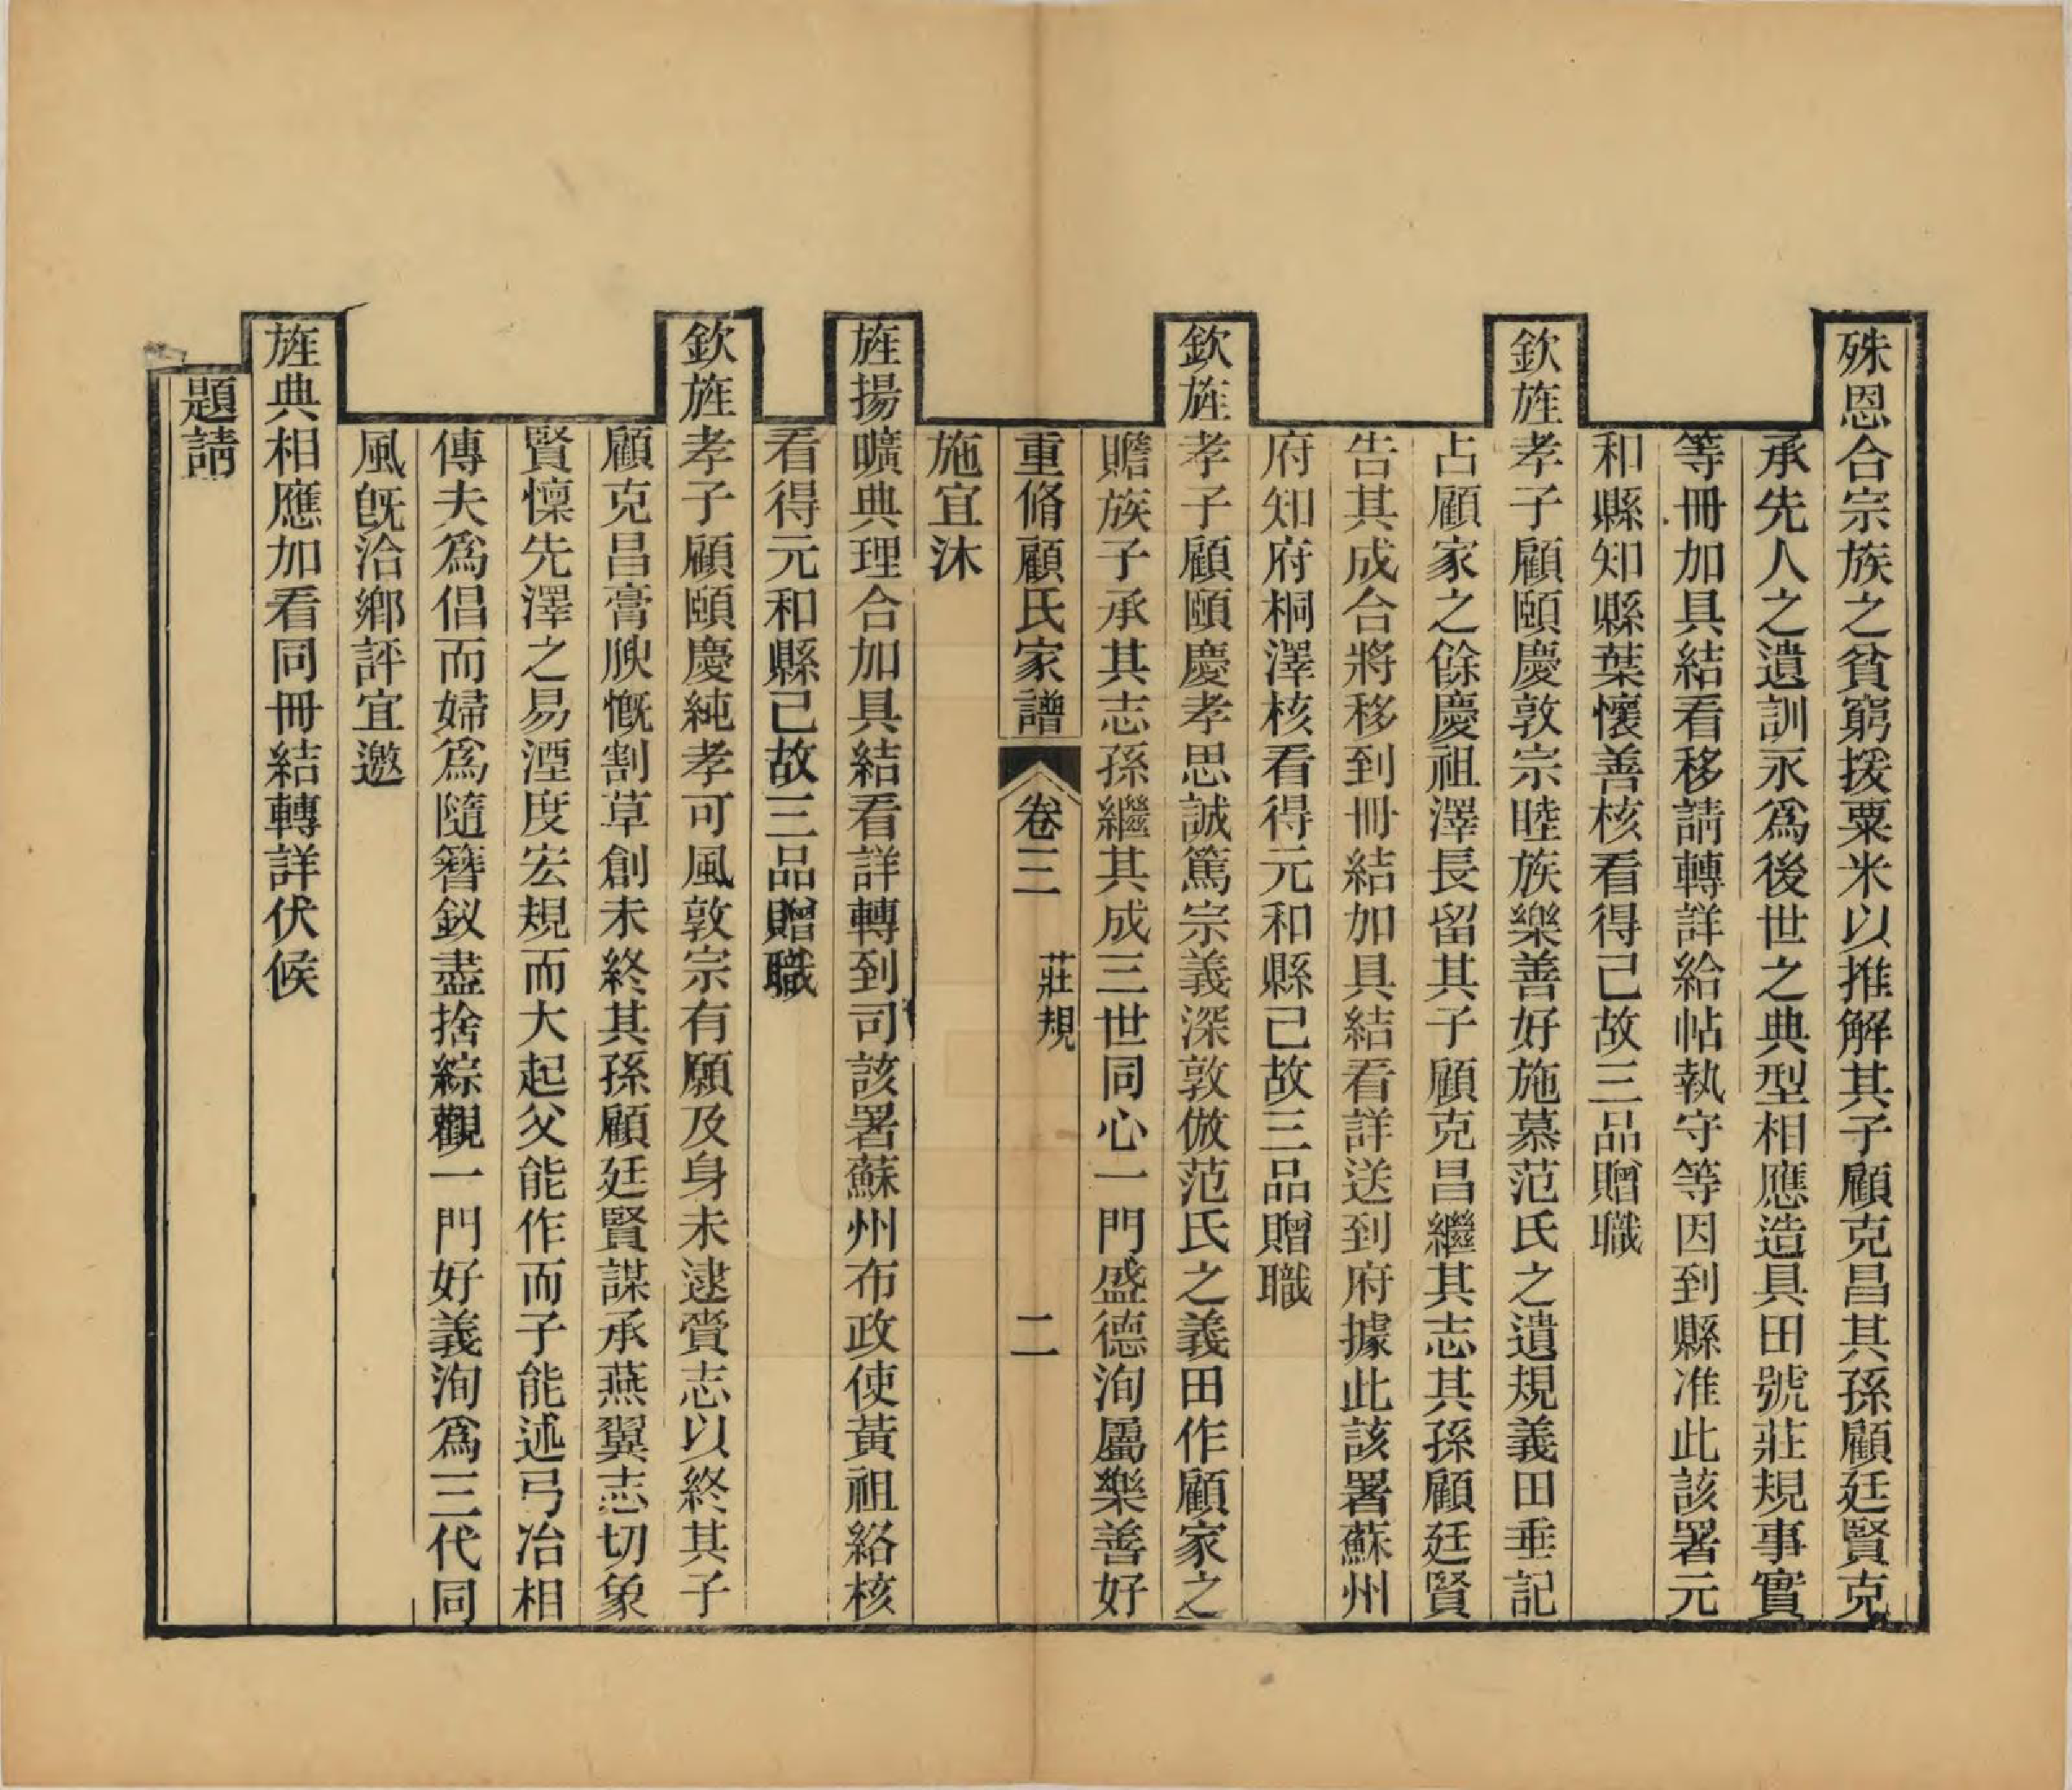 殊恩合宗族之貧窮撥粟米以推解其子顧克昌其孫顧廷賢克
承先人之遺訓永爲後世之典型相應造具田號莊規事實
等冊加具結看移請轉詳給帖執守等因到縣准此該署元
和縣知縣葉懷善核看得己故三品贈職
欽旌孝子顧頤慶敦宗睦族樂善好施慕范氏之遺規義田垂記
占顧家之餘慶祖澤長留其子顧克昌繼其志其孫顧廷賢
告其成合將移到冊結加具結看詳送到府據此該署蘇州
府知府桐澤核看得元和縣己故三品贈職
欽旌孝子顧頤慶孝思誠篤宗義深敦倣范氏之義田作顧家之
贍族子承其志孫繼其成三世同心一門盛德洵屬樂善好
重脩顧氏家譜 卷三 莊規 二
施宜沐
旌揚曠典理合加具結看詳轉到司該署蘇州布政使黃祖絡核
看得元和縣己故三品贈職
欽旌孝子顧頤慶純孝可風敦宗有願及身未逮賫志以終其子
顧克昌膏腴慨割草創未終其孫顧廷賢謀承燕翼志切象
賢懍先澤之易湮度宏規而大起父能作而子能述弓冶相
傳夫爲倡而婦爲隨簪釵盡捨綜觀一門好義洵爲三代同
風旣洽鄉評宜邀
旌典相應加看同冊結轉詳伏候
題請